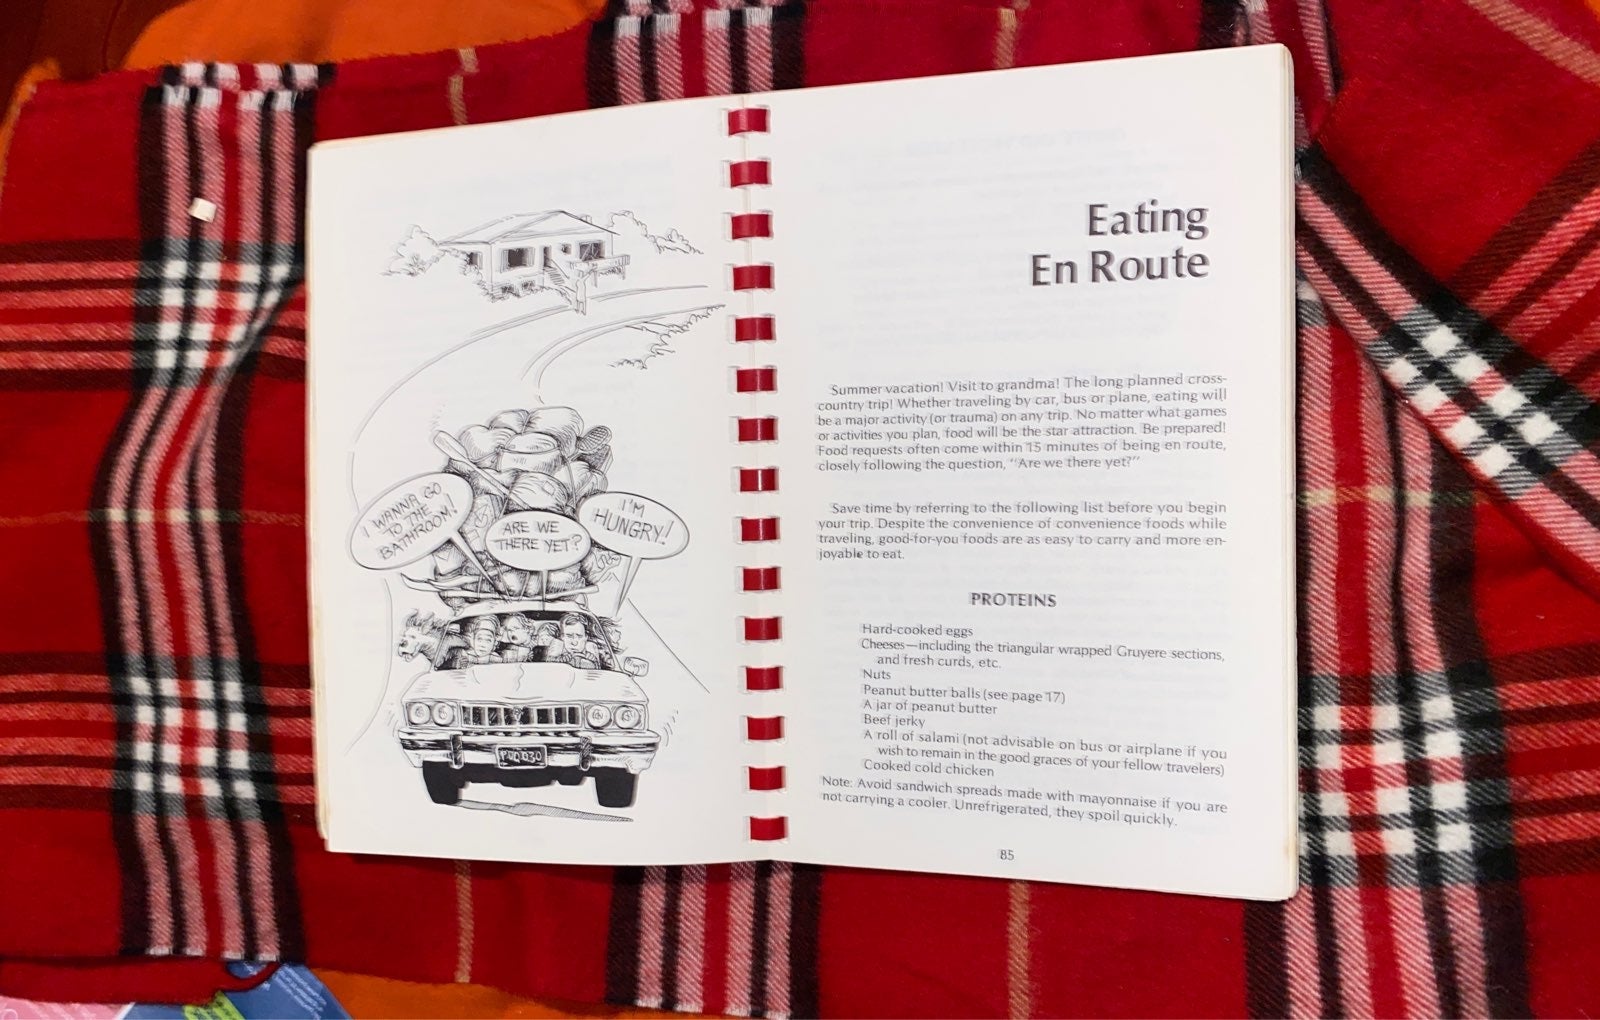 I WANNA GO
TO THE
BATHROOM!
ARE WE
THERE YET?
I'M
HUNGRY!
Eating
En Route
Summer vacation! Visit to grandma! The long planned cross-
country trip! Whether traveling by car, bus or plane, eating will
be a major activity (or trauma) on any trip. No matter what games
or activities you plan, food will be the star attraction. Be prepared!
Food requests often come within 15 minutes of being en route,
closely following the question, "Are we there yet?"
Save time by referring to the following list before you begin
your trip. Despite the convenience of convenience foods while
traveling, good-for-you foods are as easy to carry and more en-
joyable to eat.
PROTEINS
Hard-cooked eggs
Cheeses—including the triangular wrapped Gruyere sections,
and fresh curds, etc.
Nuts
Peanut butter balls (see page 17)
A jar of peanut butter
Beef jerky
A roll of salami (not advisable on bus or airplane if you
wish to remain in the good graces of your fellow travelers)
Cooked cold chicken
Note: Avoid sandwich spreads made with mayonnaise if you are
not carrying a cooler. Unrefrigerated, they spoil quickly.
85